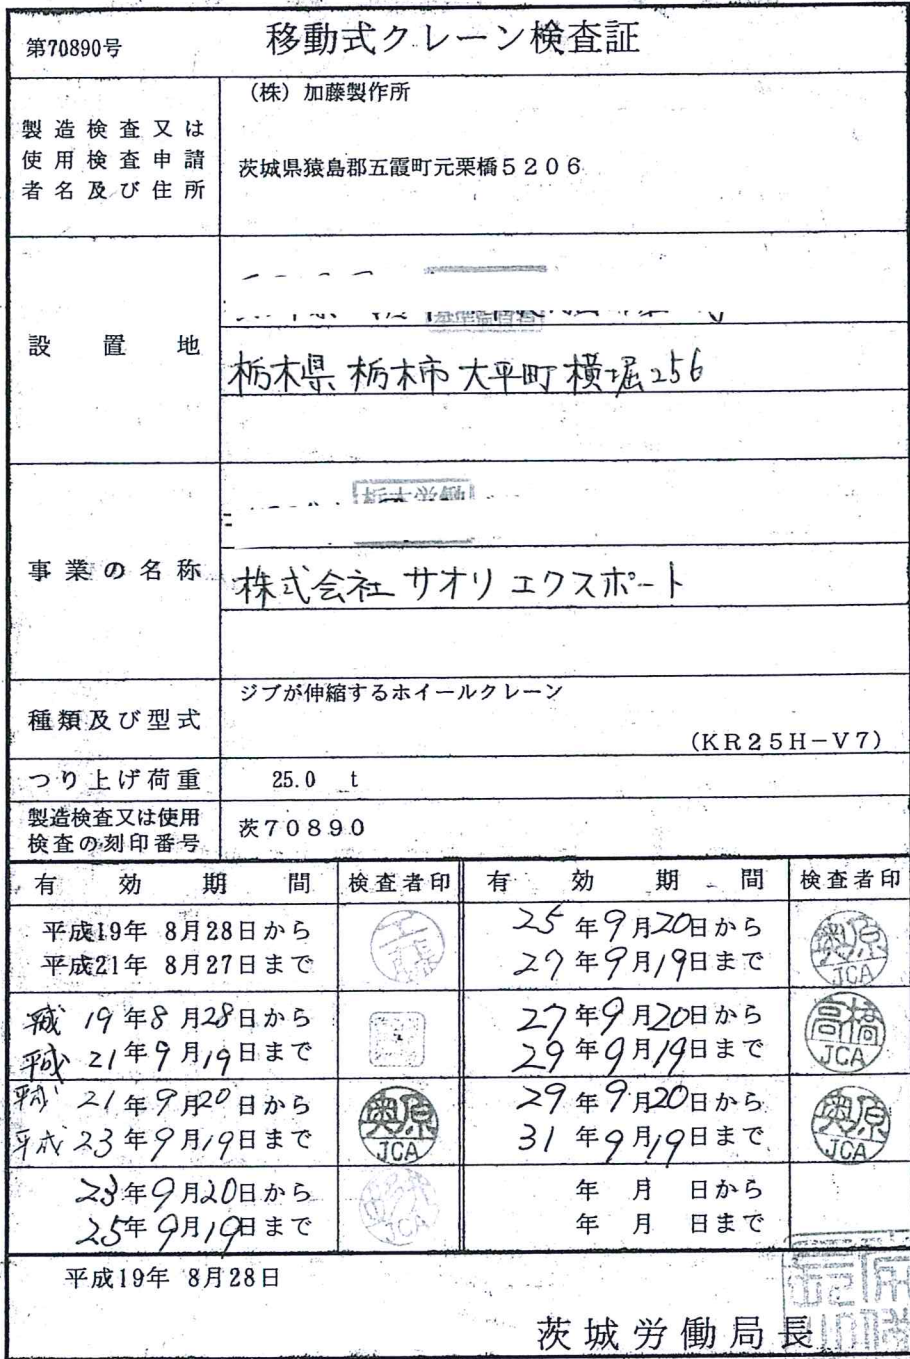 第70890号
移動式クレーン検査証
製造検査又は
使用検査申請
者名及び住所
(株) 加藤製作所
茨城県猿島郡五霞町元栗橋5206
設置地
栃木県 栃木市 大平町 横堀256
事業の名称
株式会社 サオリ エクスポート
種類及び型式
ジブが伸縮するホイールクレーン
(KR25H-V7)
つり上げ荷重
25.0 t
製造検査又は使用
検査の刻印番号
茨70890
有効期間 検査者印 有効期間 検査者印
平成19年 8月28日から
平成21年 8月27日まで
25年9月20日から
27年9月19日まで
奥原
JCA
平成 19年8月28日から
平成 21年9月19日まで
27年9月20日から
29年9月19日まで
高橋
JCA
平成 21年9月20日から
平成 23年9月19日まで
奥原
JCA
29年9月20日から
31年9月19日まで
奥原
JCA
23年9月20日から
25年9月19日まで
JCA
年 月 日から
年 月 日まで
平成19年 8月28日
茨城労働局長